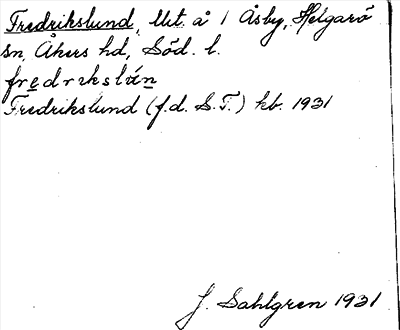 Fredrikslund, lht. å 1 Åsby, Helgarö
sn, Åkers hd, Söd. l.
fredrikslún
Fredrikslund (f.d. S.T.) kb. 1931
J. Sahlgren 1931